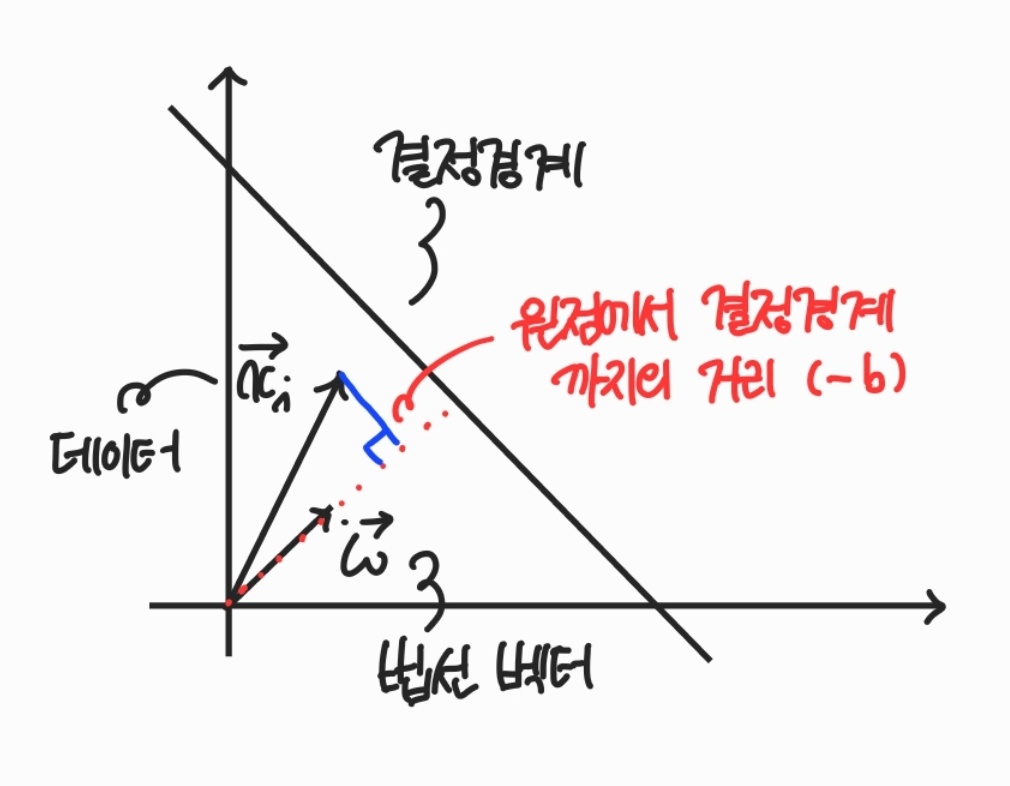 결정경계
원점에서 결정경계
까지의 거리 (-b)
x⃗ᵢ
데이터
w⃗
법선 벡터